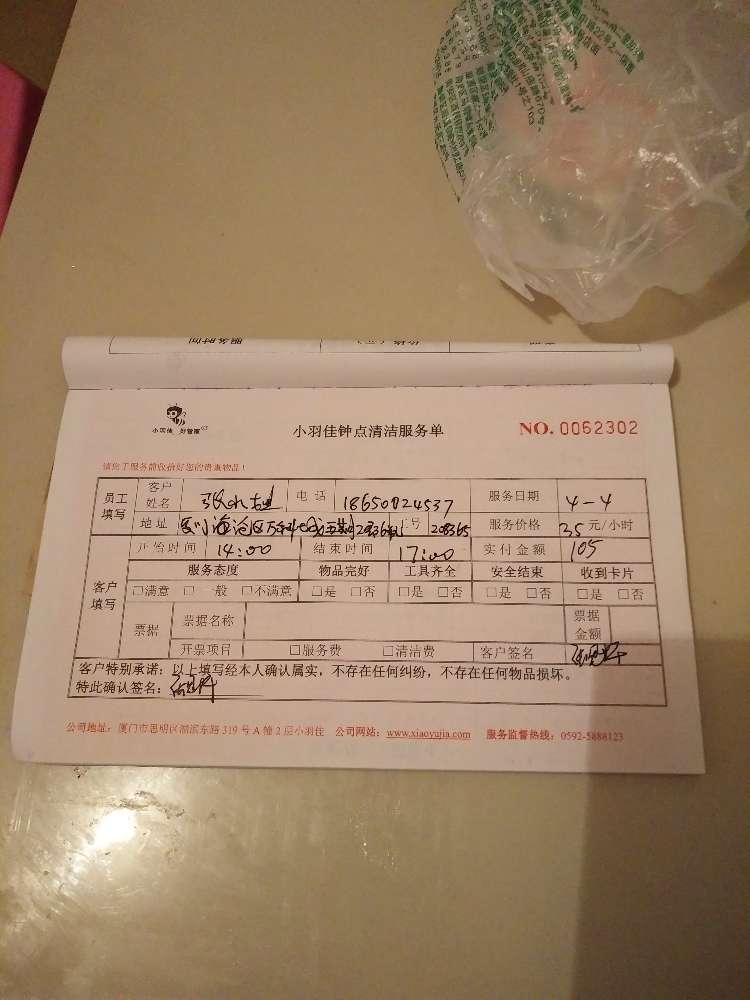 小羽佳 好管家
小羽佳钟点清洁服务单
NO. 0062302
请您于服务前收拾好您的贵重物品！
员工填写 客户姓名 张 电话 18650024537 服务日期 4-4
地址 厦门海沧区万科 208365 服务价格 35元/小时
客户填写 开始时间 14:00 结束时间 17:00 实付金额 105
服务态度 物品完好 工具齐全 安全结束 收到卡片
□满意 □一般 □不满意 □是 □否 □是 □否 □是 □否 □是 □否
票据 票据名称 票据金额
开票项目 □服务费 □清洁费 客户签名
客户特别承诺：以上填写经本人确认属实，不存在任何纠纷，不存在任何物品损坏。
特此确认签名：
公司地址：厦门市思明区湖滨东路 319 号 A 幢 2 层小羽佳 公司网站：www.xiaoyujia.com 服务监督热线：0592-5888123